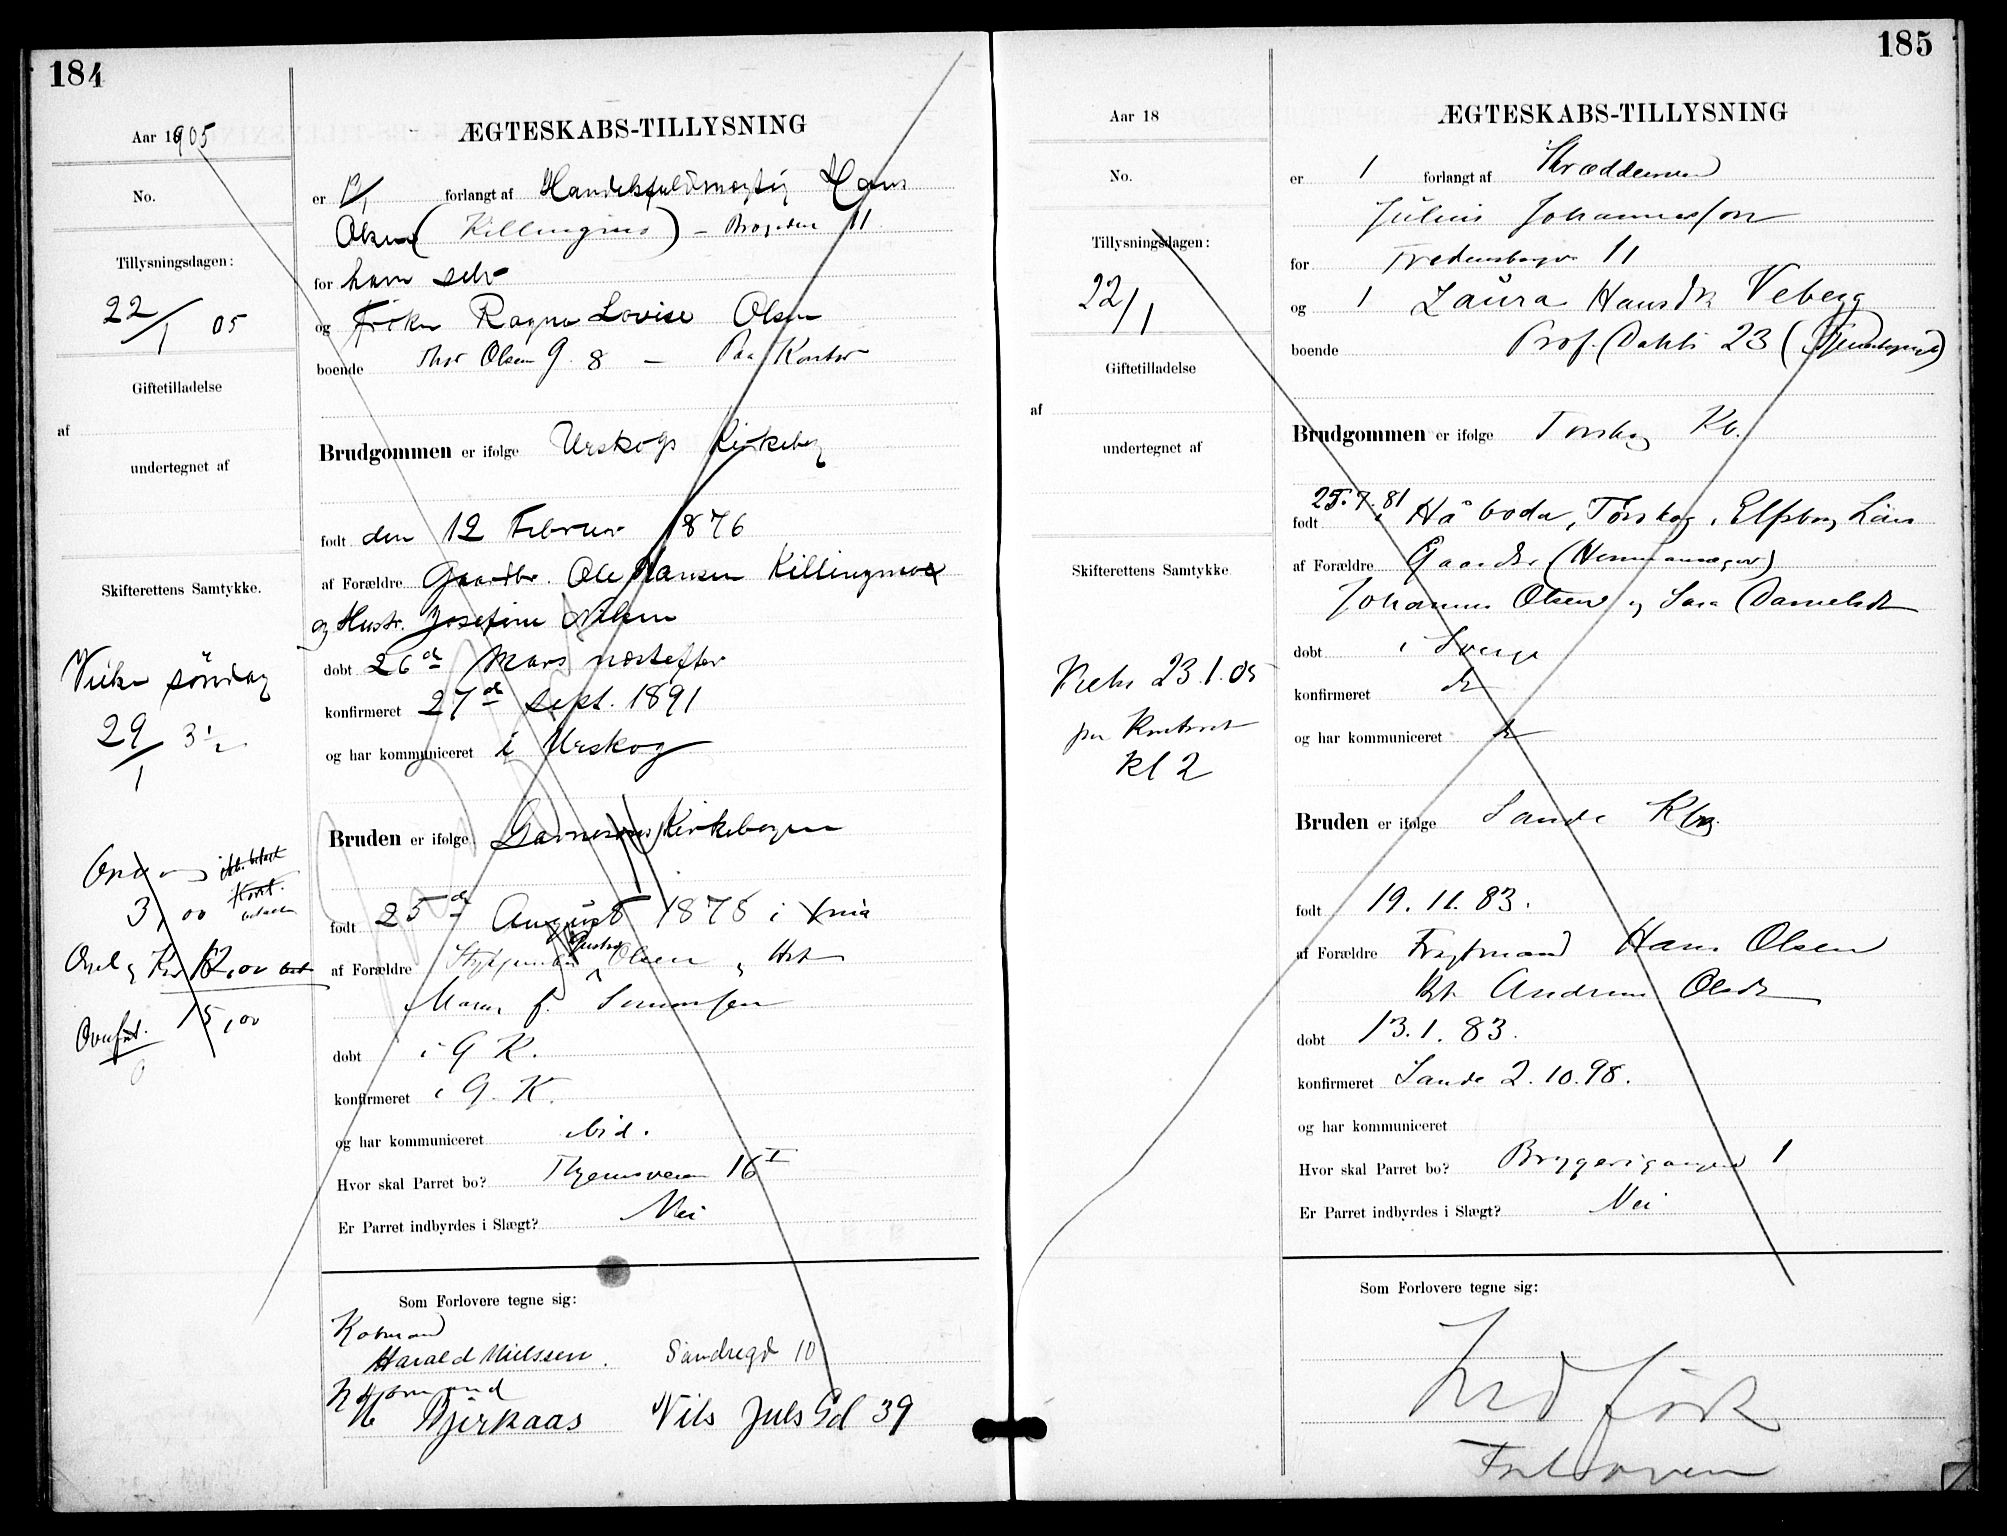 184
Aar 1905
No.
Tillysningsdagen:
22/1 05
Giftetilladelse
af
undertegnet af
Skifterettens Samtykke.
Vielse söndag
29/1 3½
3,00
12,00
15,00
ÆGTESKABS-TILLYSNING
er forlangt af Handelsfuldmægtig Hans
Olsen (Killingmo) - 11
for ham selv
og Frøken Ragna Lovise Olsen
boende Thor Olsen G. 8 — Paa Kontor
Brudgommen er ifølge Urskogs Kirkebog
født den 12 Februar 1876
af Forældre Gaardbr. Ole Hansen Killingmoe
og Hustr. Josefine Nilsen
døbt 26de Mars næstefter
konfirmeret 27de Sept. 1891
og har kommuniceret i Urskog
Bruden er ifølge Garnisons Kirkebogen
født 25de August 1875 i Xnia
af Forældre Olsen og Hst
Maren f. Simonsen
døbt i G K.
konfirmeret i G. K.
og har kommuniceret ibid.
Hvor skal Parret bo? 16 I
Er Parret indbyrdes i Slægt? Nei
Som Forlovere tegne sig:
Kobmand
Harald Nielssen. Sandregd 10
Bjerkaas Nils Juls Gd 39
185
Aar 18
No.
Tillysningsdagen:
22/1
Giftetilladelse
af
undertegnet af
Skifterettens Samtykke
Vielse 23.1.05
paa Kontoret
kl 2
ÆGTESKABS-TILLYSNING
er 1 forlangt af Skræddersvend
Julius Johannesson
for Fredensborgv 11
og 1 Laura Hansdtr Vebegg
boende Prof. Dahls 23 (Tjenestepige)
Brudgommen er ifølge Torskog Kb.
25.7.81
født i Håboda, Törskog, Elfsborg Län
af Forældre Gaardbr (Hemmansegar)
Johannes Olsen og Sara Danielsdtr
døbt i Sverge
konfirmeret do
og har kommuniceret do
Bruden er ifølge Sande Kbg.
født 19.11.83.
af Forældre Fragtmand Hans Olsen
Andrine Olsdtr
døbt 13.1.83.
konfirmeret Sande 2.10.98.
og har kommuniceret
Hvor skal Parret bo? Bryggerigangen 1
Er Parret indbyrdes i Slægt? Nei
Som Forlovere tegne sig:
Forlovere